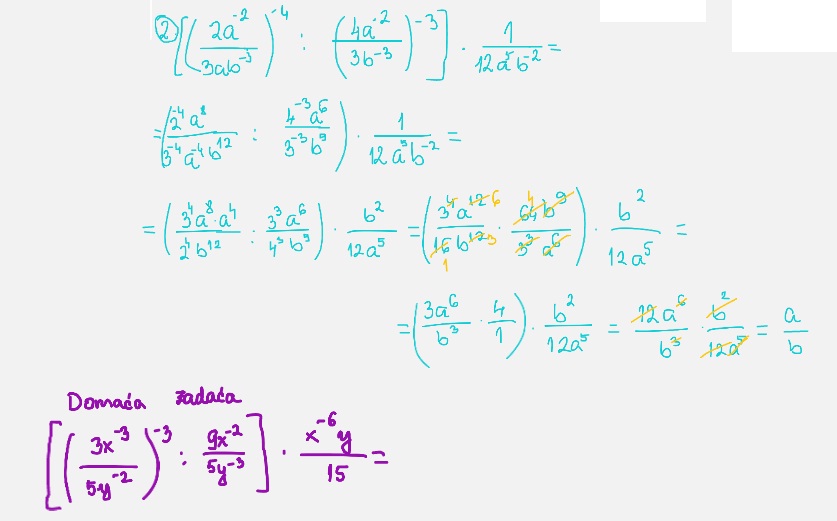 ② [(2a⁻²/3ab⁻³)⁻⁴ : (4a⁻²/3b⁻³)⁻³] · 1/12a⁵b⁻² =
= (2⁻⁴a⁸/3⁻⁴a⁻⁴b¹² : 4⁻³a⁶/3⁻³b⁹) · 1/12a⁵b⁻² =
= (3⁴a⁸·a⁴/2⁴b¹² : 3³a⁶/4³b⁹) · b²/12a⁵ = (3⁴a¹² 6/16b¹² 3 1 · 64 4 b⁹/3³a⁶) · b²/12a⁵ =
= (3a⁶/b³ · 4/1) · b²/12a⁵ = 12a⁶/b³ · b²/12a⁵ = a/b
Domaća zadaća
[(3x⁻³/5y⁻²)⁻³ : 9x⁻²/5y⁻³] · x⁻⁶y/15 =